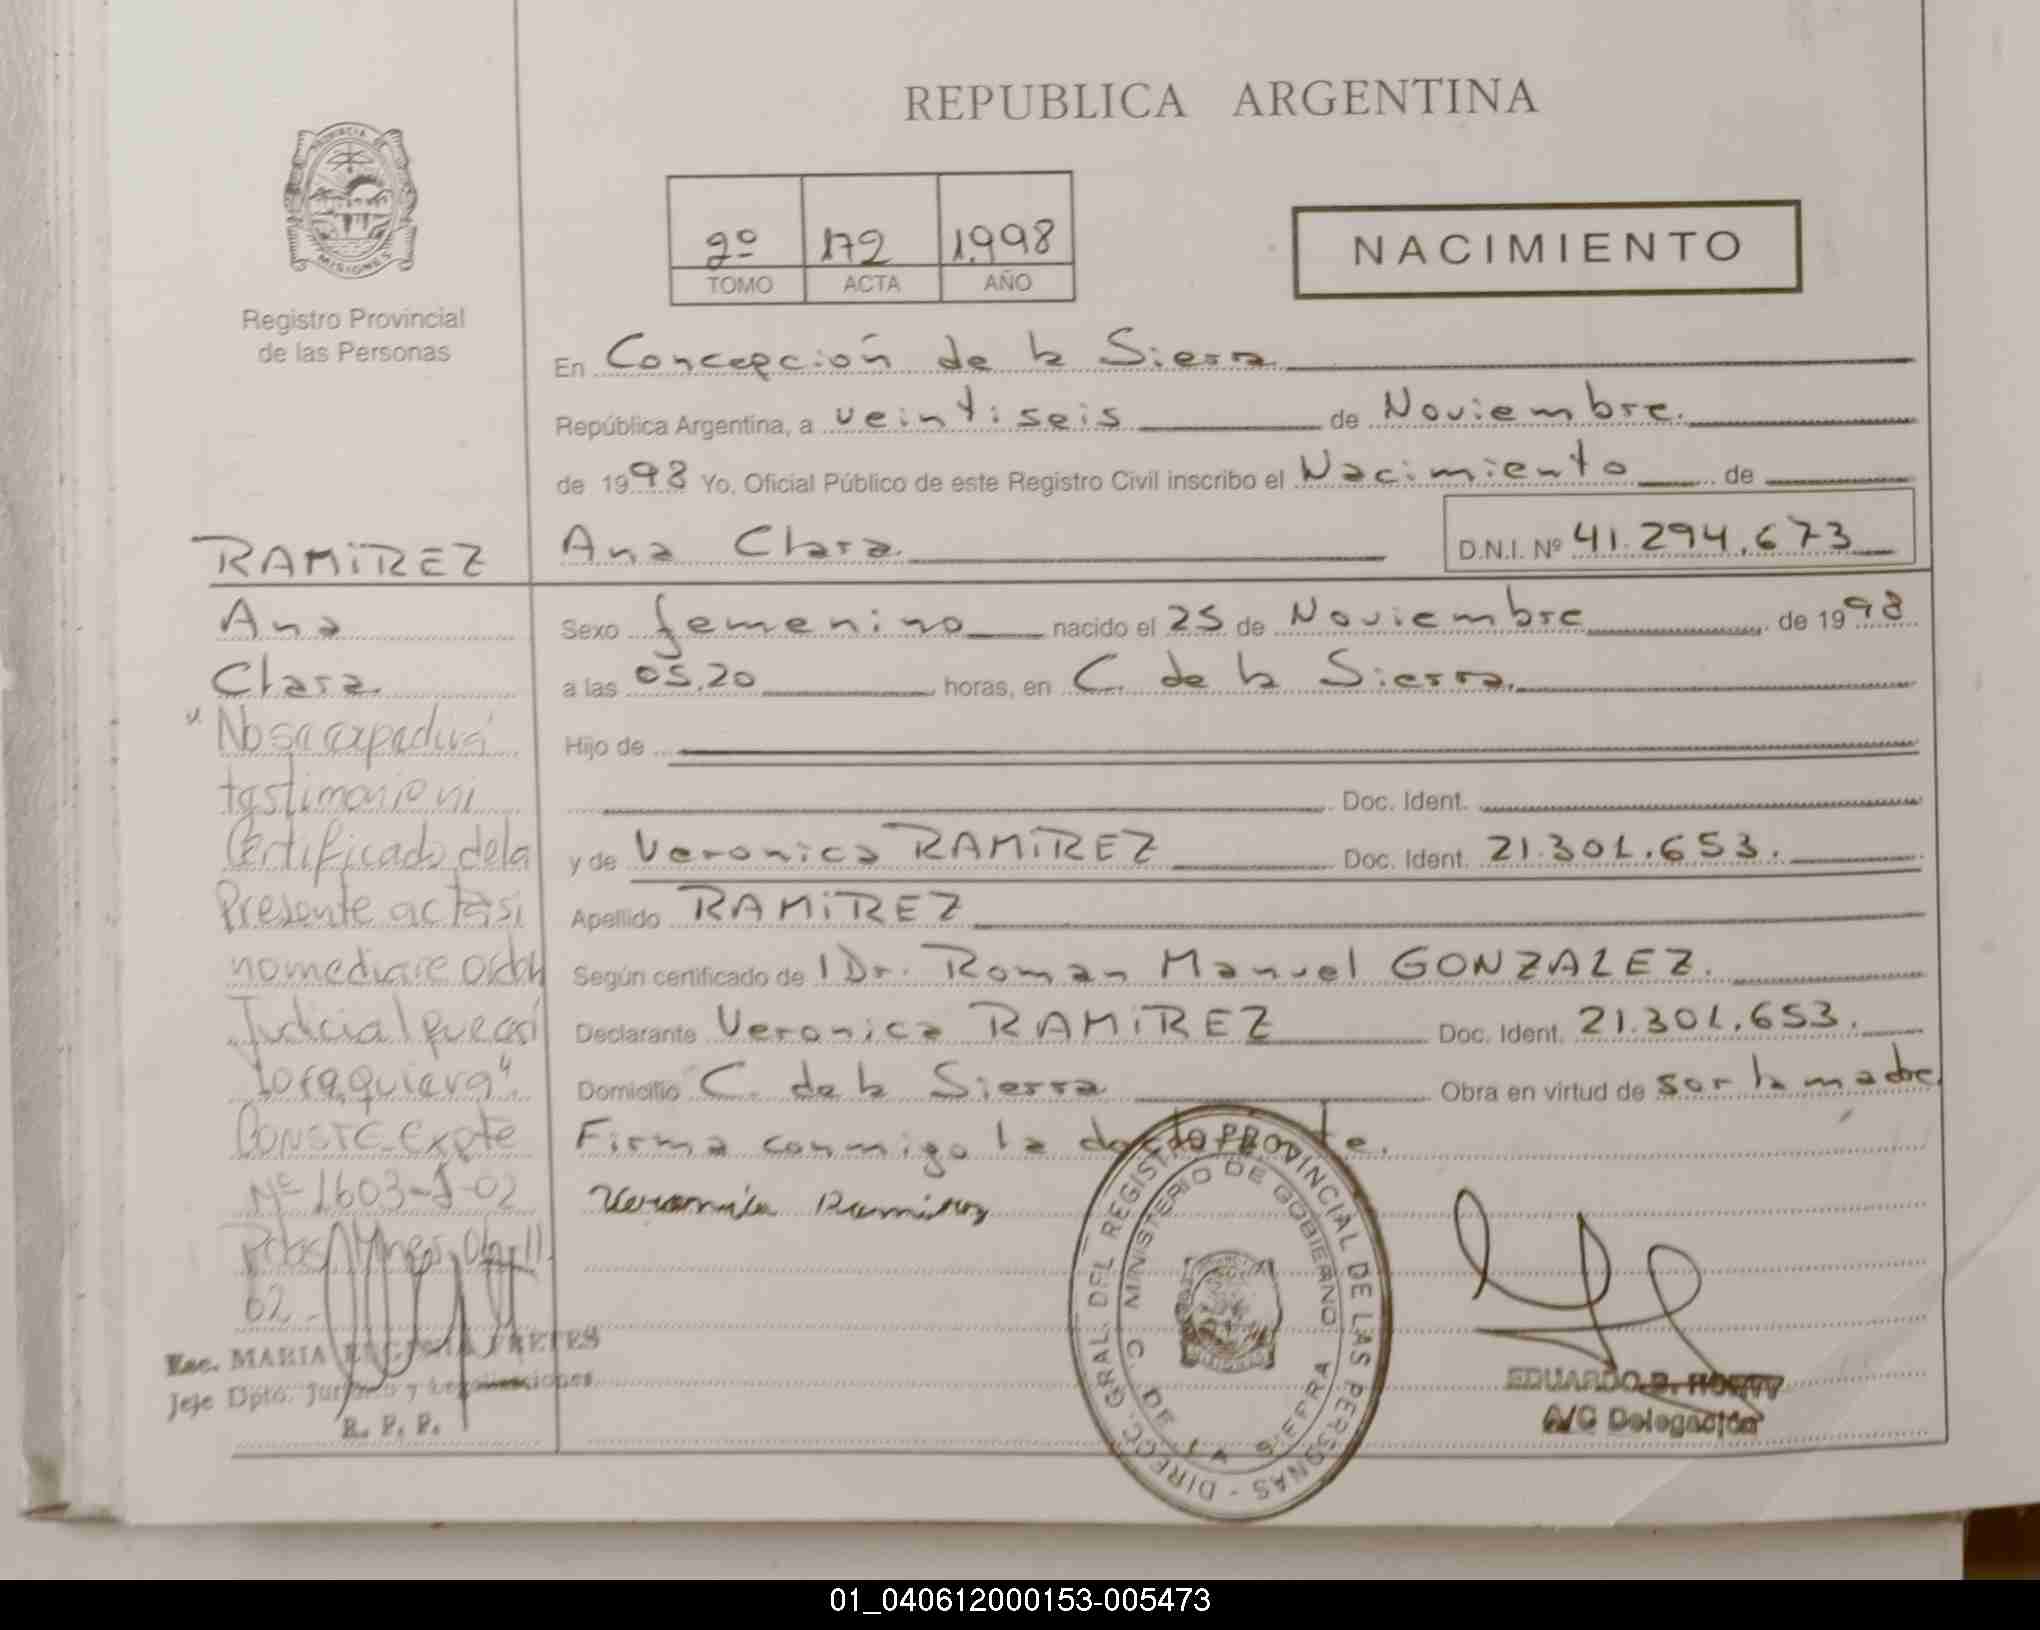 REPUBLICA ARGENTINA
PROVINCIA
MISIONES
Registro Provincial
de las Personas
2º 172 1.998
TOMO ACTA AÑO
NACIMIENTO
En Concepción de la Sierra
República Argentina, a veintiseis de Noviembre.
de 1998 Yo, Oficial Público de este Registro Civil inscribo el Nacimiento de
Ana Clara. D.N.I. Nº 41.294.673
Sexo femenino nacido el 25 de Noviembre de 1998
a las 05.20 horas, en C. de la Sierra.
Hijo de
Doc. Ident.
y de Veronica RAMIREZ Doc. Ident. 21.301.653.
Apellido RAMIREZ
Según certificado de 1 Dr. Roman Manuel GONZALEZ.
Declarante Veronica RAMIREZ Doc. Ident. 21.301.653.
Domicilio C. de la Sierra Obra en virtud de ser la madre
Firma conmigo la declarante.
Veronica Ramirez
RAMIREZ
Ana
Clara.
"No se expedirá
testimonio ni
Certificado de la
Presente acta si
no mediare orden
Judicial que así
lo requiera".
Conste. Expte
Nº 1603-J-02
Pdas Mnes, 04-11-
02.-
Esc. MARIA FRETES
Jefe Dpto. Jurídico y Legalizaciones
R. P. P.
DIRECC. GRAL. DEL REGISTRO PROVINCIAL DE LAS PERSONAS -
MINISTERIO DE GOBIERNO
C. DE LA SIERRA
EDUARDO
A/C Delegación
01_040612000153-005473